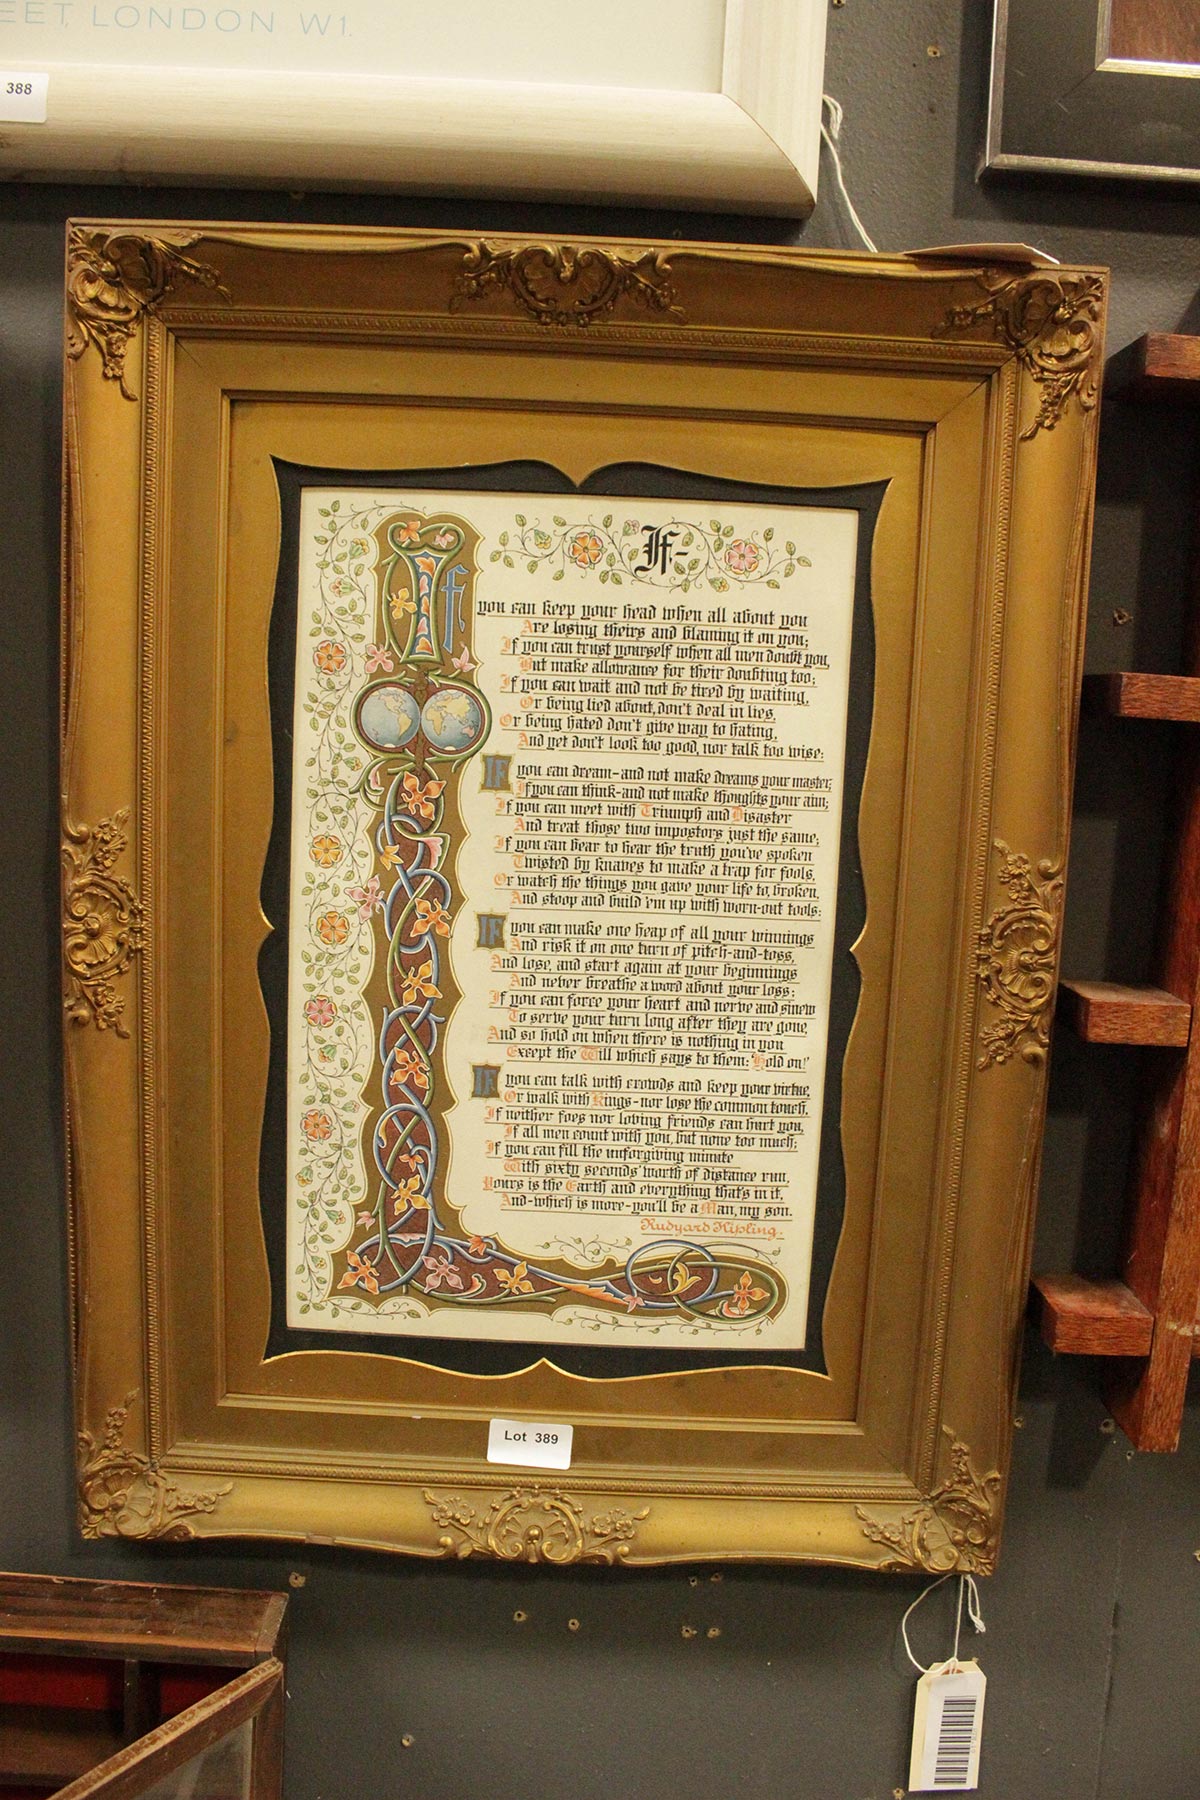 EET, LONDON W1.
388
If-
If
you can keep your head when all about you
Are losing theirs and blaming it on you;
If you can trust yourself when all men doubt you,
But make allowance for their doubting too;
If you can wait and not be tired by waiting,
Or being lied about, don't deal in lies,
Or being hated don't give way to hating,
And yet don't look too good, nor talk too wise:
IF you can dream-and not make dreams your master;
If you can think-and not make thoughts your aim;
If you can meet with Triumph and Disaster
And treat those two impostors just the same;
If you can bear to hear the truth you've spoken
Twisted by knaves to make a trap for fools,
Or watch the things you gave your life to, broken,
And stoop and build 'em up with worn-out tools:
IF you can make one heap of all your winnings
And risk it on one turn of pitch-and-toss,
And lose, and start again at your beginnings
And never breathe a word about your loss;
If you can force your heart and nerve and sinew
To serve your turn long after they are gone,
And so hold on when there is nothing in you
Except the Will which says to them: 'Hold on!'
IF you can talk with crowds and keep your virtue,
Or walk with Kings-nor lose the common touch,
If neither foes nor loving friends can hurt you,
If all men count with you, but none too much;
If you can fill the unforgiving minute
With sixty seconds' worth of distance run,
Yours is the Earth and everything that's in it,
And-which is more-you'll be a Man, my son.
Rudyard Kipling.
Lot 389